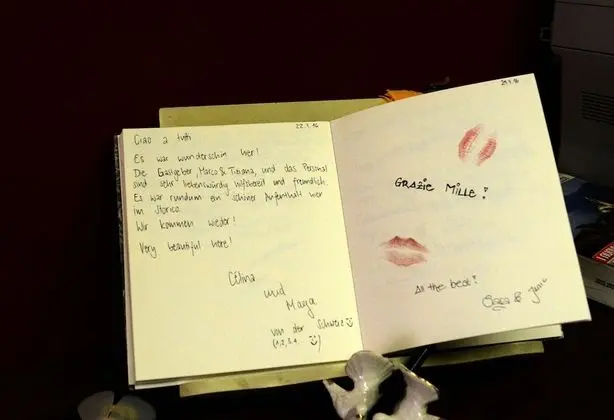 22.9.16
Ciao a tutti
Es war wunderschön hier!
Die Gastgeber, Marco & Tatiana, und das Personal
sind sehr liebenswürdig hilfsbereit und freundlich.
Es war rundum ein schöner Aufenthalt hier
im Storico.
Wir kommen wieder!
Very beautiful here!
Célina
und
Manja
von der Schweiz
GRAZIE MILLE!
All the best!
Sara &